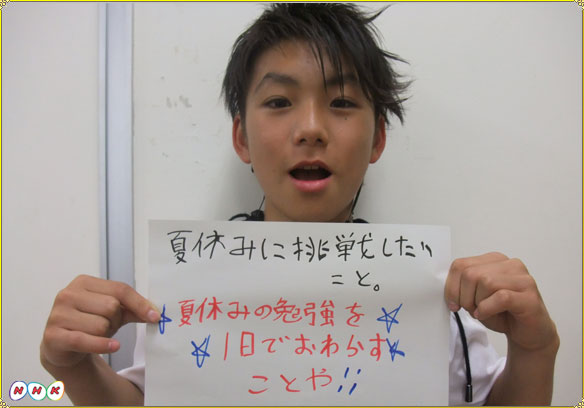 夏休みに挑戦したい
こと。
夏休みの勉強を
1日でおわらす
ことや!!
NHK